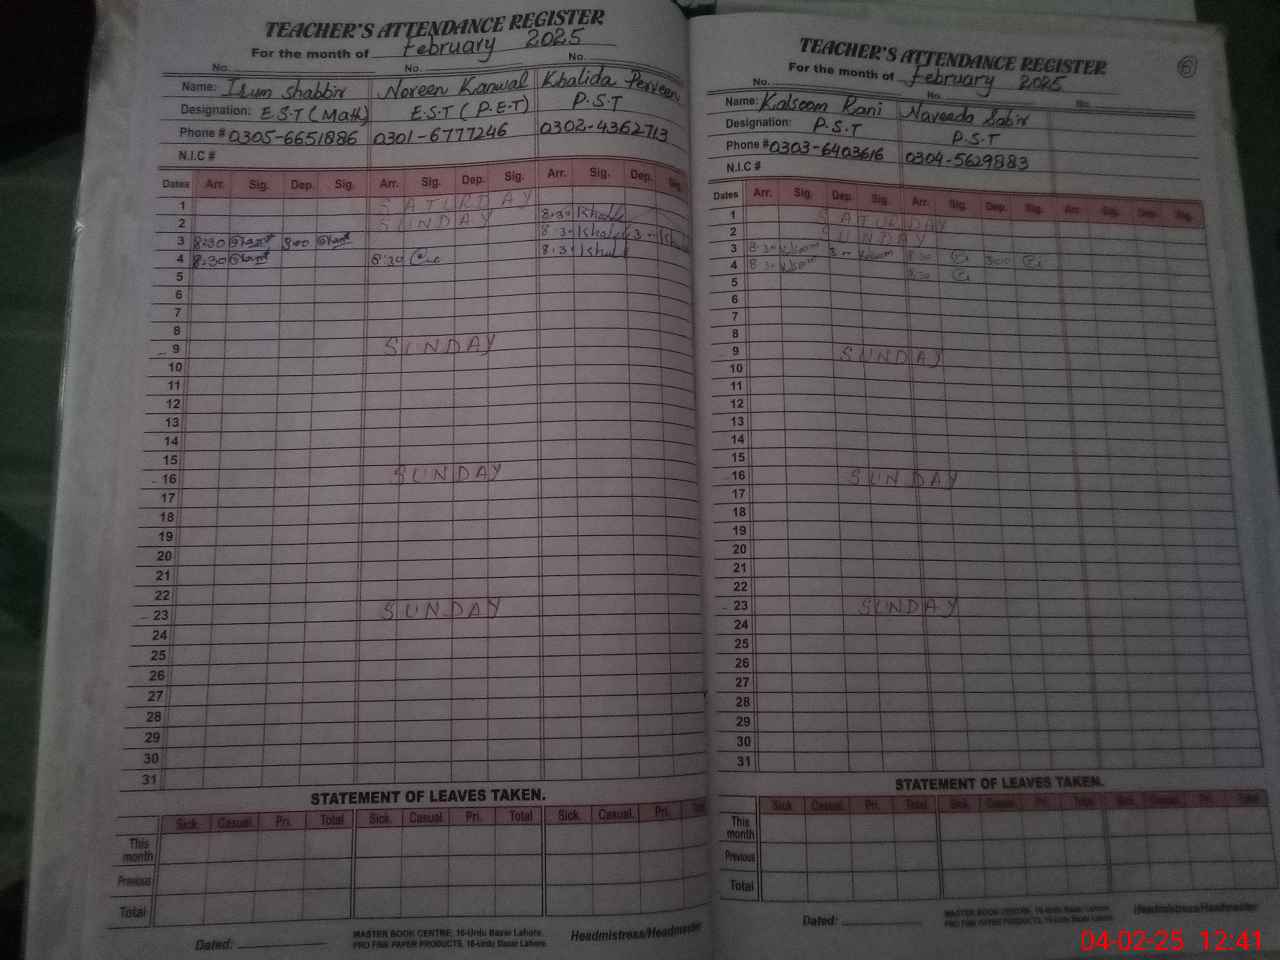 TEACHER'S ATTENDANCE REGISTER
For the month of February 2025
No. No. No.
Name: Irum Shabbir Noreen Kanwal Khalida Perveen
Designation: E.S.T (Math) E.S.T (P.E.T) P.S.T
Phone # 0305-6651886 0301-6777246 0302-4362713
N.I.C #
Dates Arr. Sig. Dep. Sig. Arr. Sig. Dep. Sig. Arr. Sig. Dep. Sig.
1 SATURDAY
2 SUNDAY 8:30
3 8:30 8:30
4 8:30 8:30 8:30
5
6
7
8
9 SUNDAY
10
11
12
13
14
15
16 SUNDAY
17
18
19
20
21
22
23 SUNDAY
24
25
26
27
28
29
30
31
STATEMENT OF LEAVES TAKEN.
Sick. Casual. Pri. Total Sick. Casual. Pri. Total Sick. Casual. Pri. Total
This month
Previous
Total
Dated:
MASTER BOOK CENTRE, 16-Urdu Bazar Lahore.
PRO FINE PAPER PRODUCTS, 16-Urdu Bazar Lahore.
Headmistress/Headmaster
TEACHER'S ATTENDANCE REGISTER
6
For the month of February 2025
No. No. No.
Name: Kalsoom Rani Naveeda Sabir
Designation: P.S.T P.S.T
Phone # 0303-6403616 0304-5629883
N.I.C #
Dates Arr. Sig. Dep. Sig. Arr. Sig. Dep. Sig. Arr. Sig. Dep. Sig.
1 SATURDAY
2 SUNDAY
3 8:30 8:30 3:00
4 8:30 8:30
5
6
7
8
9 SUNDAY
10
11
12
13
14
15
16 SUNDAY
17
18
19
20
21
22
23 SUNDAY
24
25
26
27
28
29
30
31
STATEMENT OF LEAVES TAKEN.
Sick. Casual. Pri. Total Sick. Casual. Pri. Total Sick. Casual. Pri. Total
This month
Previous
Total
Dated:
MASTER BOOK CENTRE, 16-Urdu Bazar Lahore.
PRO FINE PAPER PRODUCTS, 16-Urdu Bazar Lahore.
Headmistress/Headmaster
04-02-25 12:41